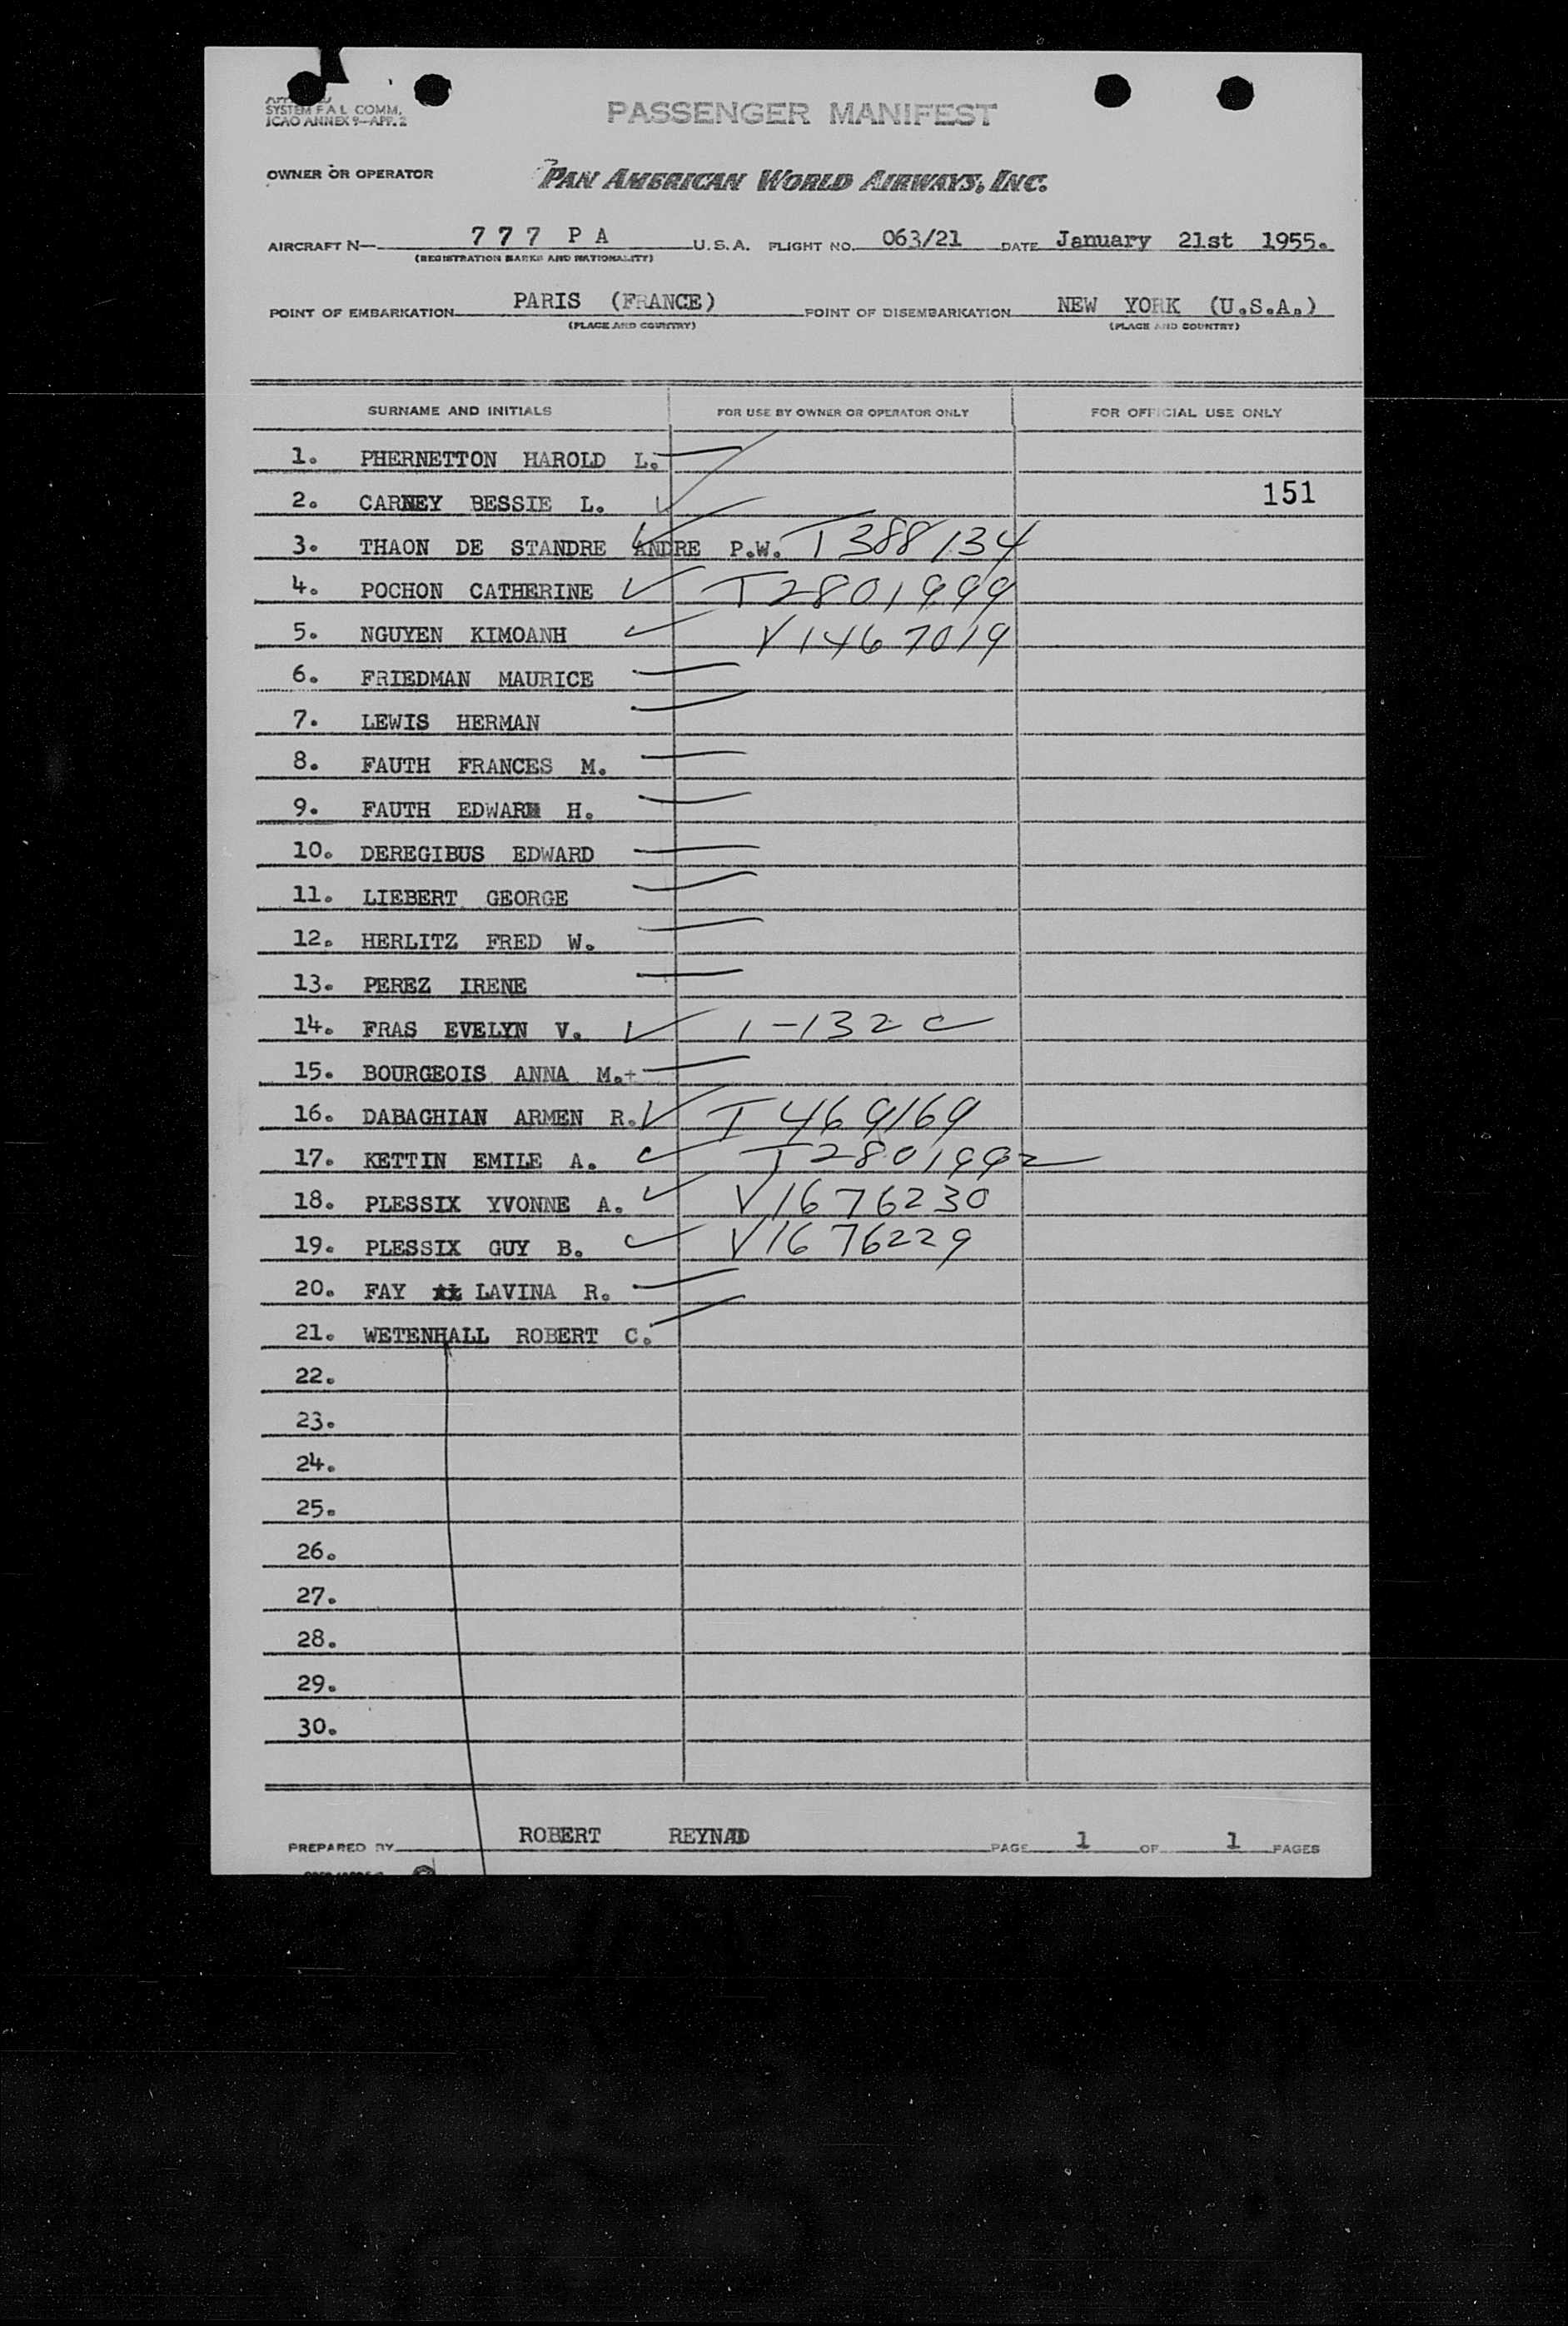 SYSTEM F A L COMM.
ICAO ANNEX 9-APP. 2
PASSENGER MANIFEST
OWNER OR OPERATOR PAN AMERICAN WORLD AIRWAYS, INC.
AIRCRAFT N— 777 PA U.S.A. FLIGHT NO. 063/21 DATE January 21st 1955.
(REGISTRATION MARKS AND NATIONALITY)
POINT OF EMBARKATION PARIS (FRANCE) POINT OF DISEMBARKATION NEW YORK (U.S.A.)
(PLACE AND COUNTRY) (PLACE AND COUNTRY)
SURNAME AND INITIALS FOR USE BY OWNER OR OPERATOR ONLY FOR OFFICIAL USE ONLY
1. PHERNETTON HAROLD L.
2. CARNEY BESSIE L. 151
3. THAON DE STANDRE ANDRE P.W. T388134
4. POCHON CATHERINE T2801999
5. NGUYEN KIMOANH V1467019
6. FRIEDMAN MAURICE
7. LEWIS HERMAN
8. FAUTH FRANCES M.
9. FAUTH EDWARD H.
10. DEREGIBUS EDWARD
11. LIEBERT GEORGE
12. HERLITZ FRED W.
13. PEREZ IRENE
14. FRAS EVELYN V. 1-132 C
15. BOURGEOIS ANNA M.+
16. DABAGHIAN ARMEN R. T469169
17. KETTIN EMILE A. T2801992
18. PLESSIX YVONNE A. V1676230
19. PLESSIX GUY B. V1676229
20. FAY LAVINA R.
21. WETENHALL ROBERT C.
22.
23.
24.
25.
26.
27.
28.
29.
30.
PREPARED BY ROBERT REYNAD PAGE 1 OF 1 PAGES